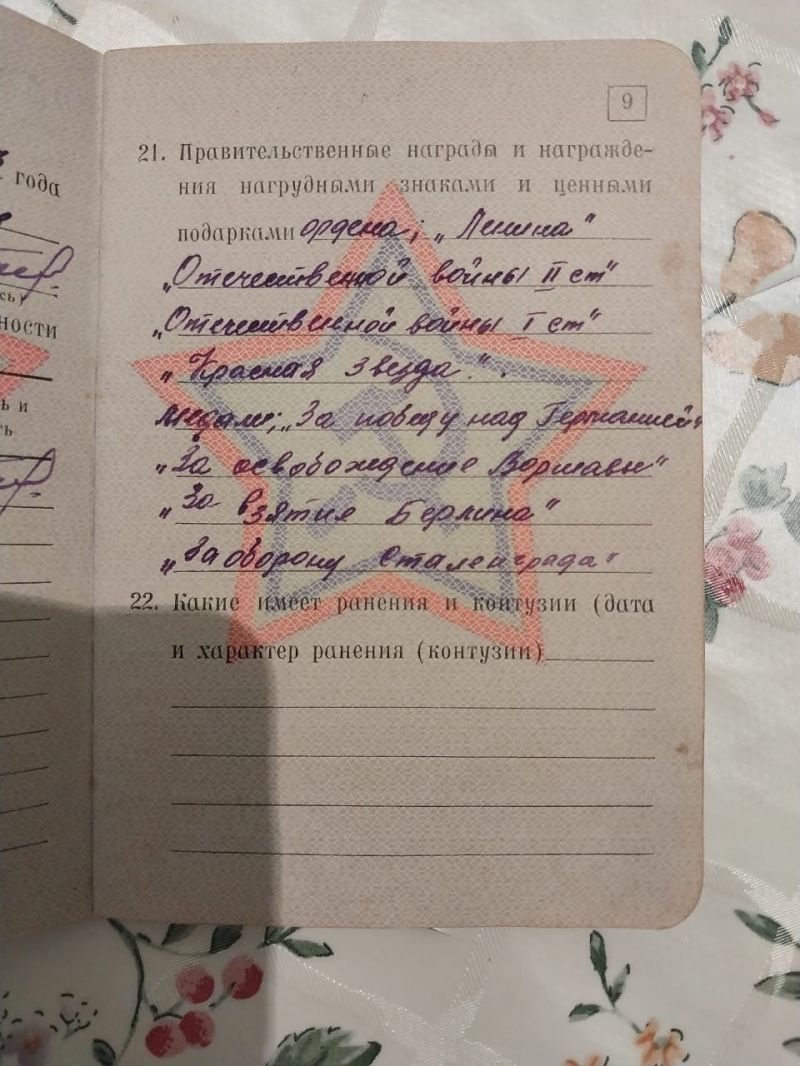 9
года
21. Правительственные награды и награжде-
ния нагрудными знаками и ценными
подарками ордена; „Ленина"
„Отечественной войны II ст"
„Отечественной войны I ст"
„Красная звезда".
медали; „За победу над Германией"
„За освобождение Варшавы"
„За взятие Берлина"
„За оборону Сталенграда"
22. Какие имеет ранения и контузии (дата
и характер ранения (контузии)
ности
ь и
ть